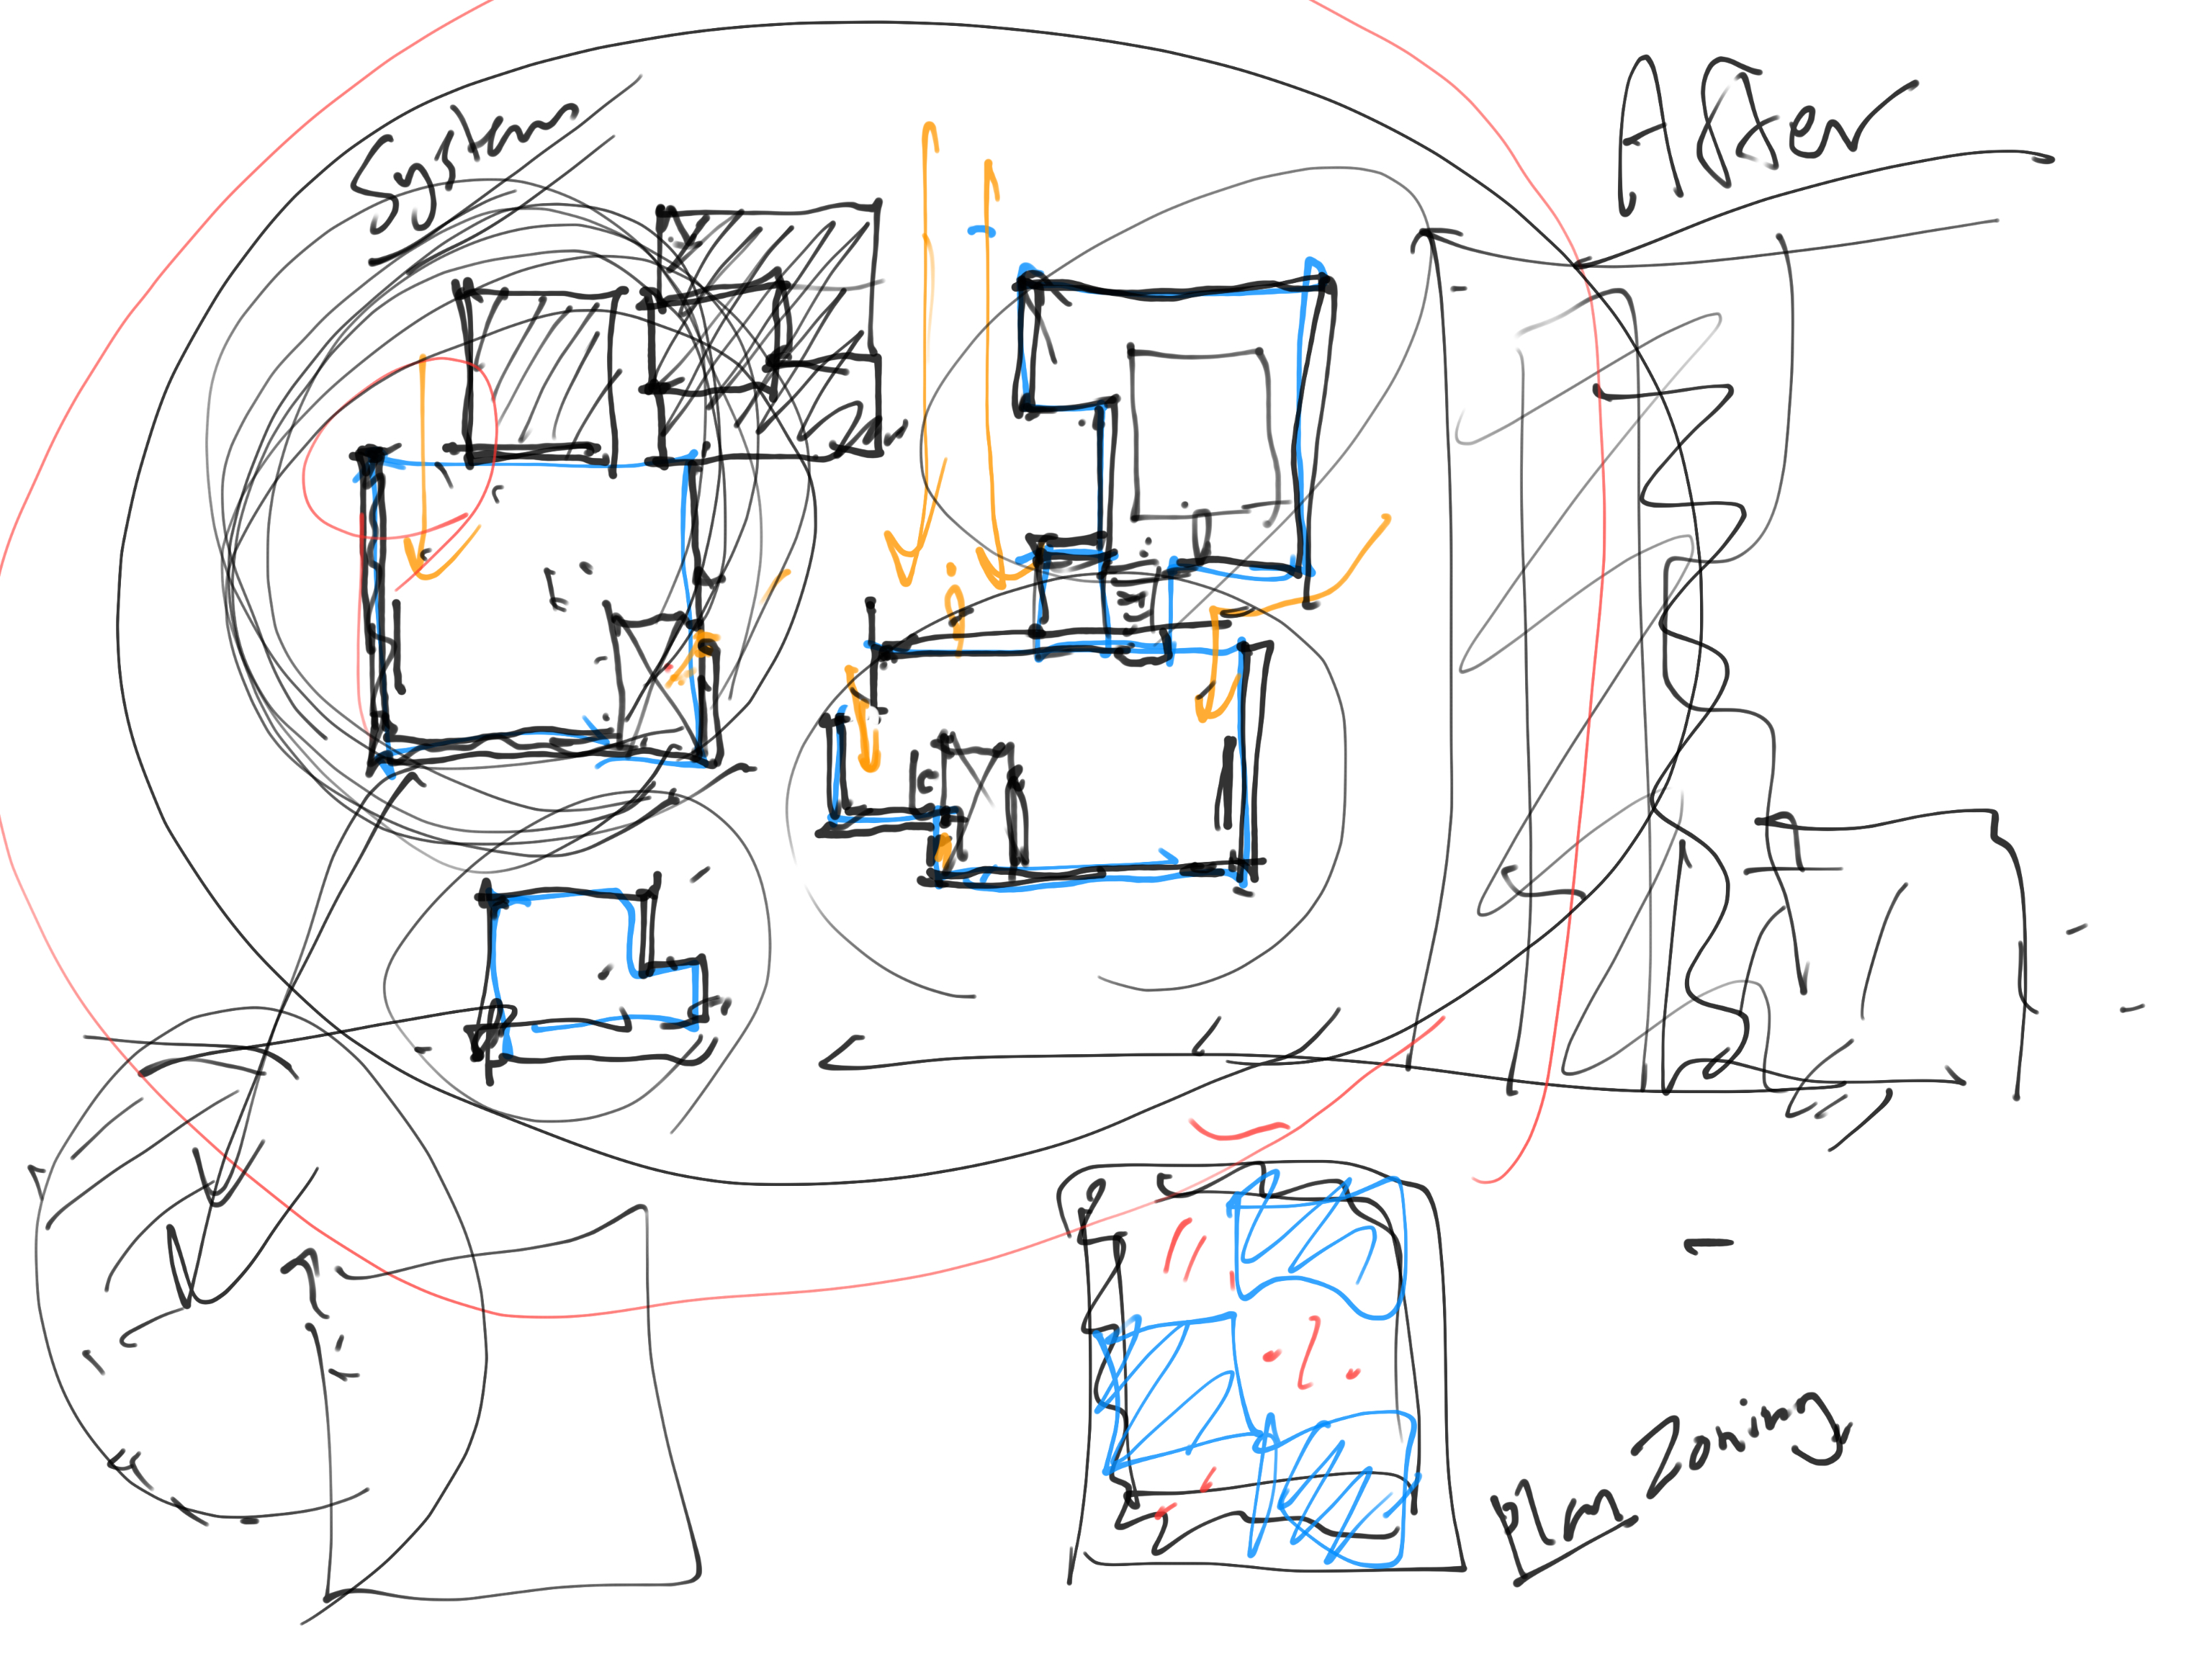 System
After
Plan Zoning